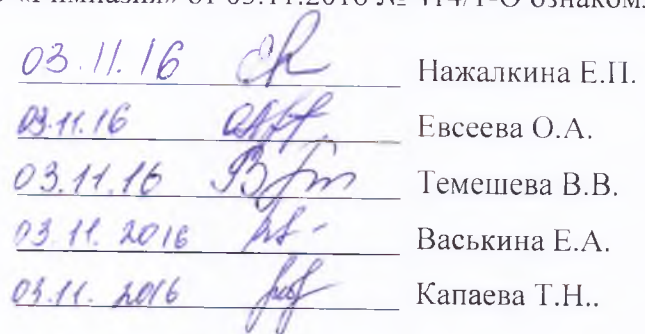 «Гимназия» от 03.11.2016 № 414/1-О ознаком
03.11.16 Нажалкина Е.П.
03.11.16 Евсеева О.А.
03.11.16 Темешева В.В.
03.11.2016 Васькина Е.А.
03.11.2016 Капаева Т.Н..